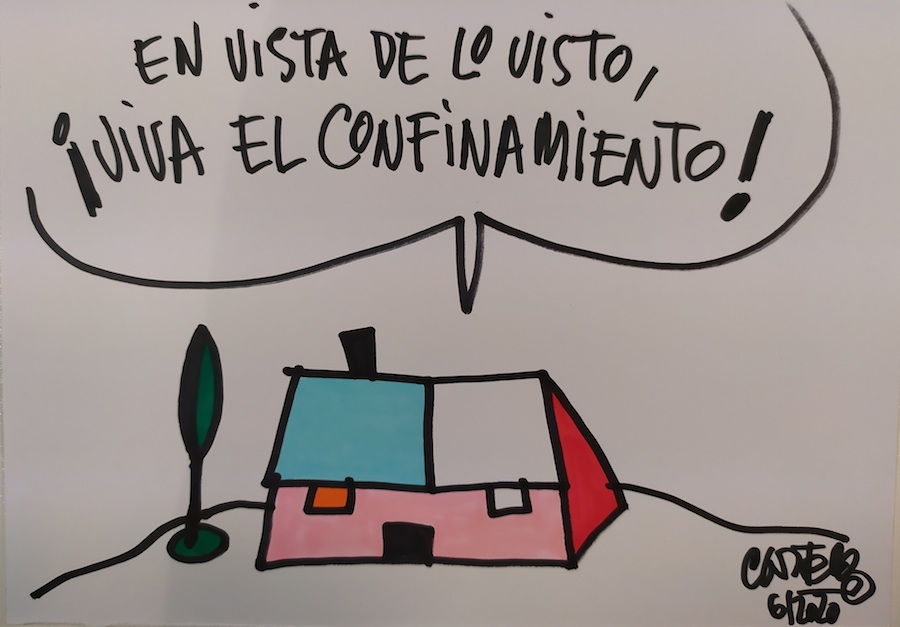 EN VISTA DE LO VISTO,
¡VIVA EL CONFINAMIENTO!
6/2020